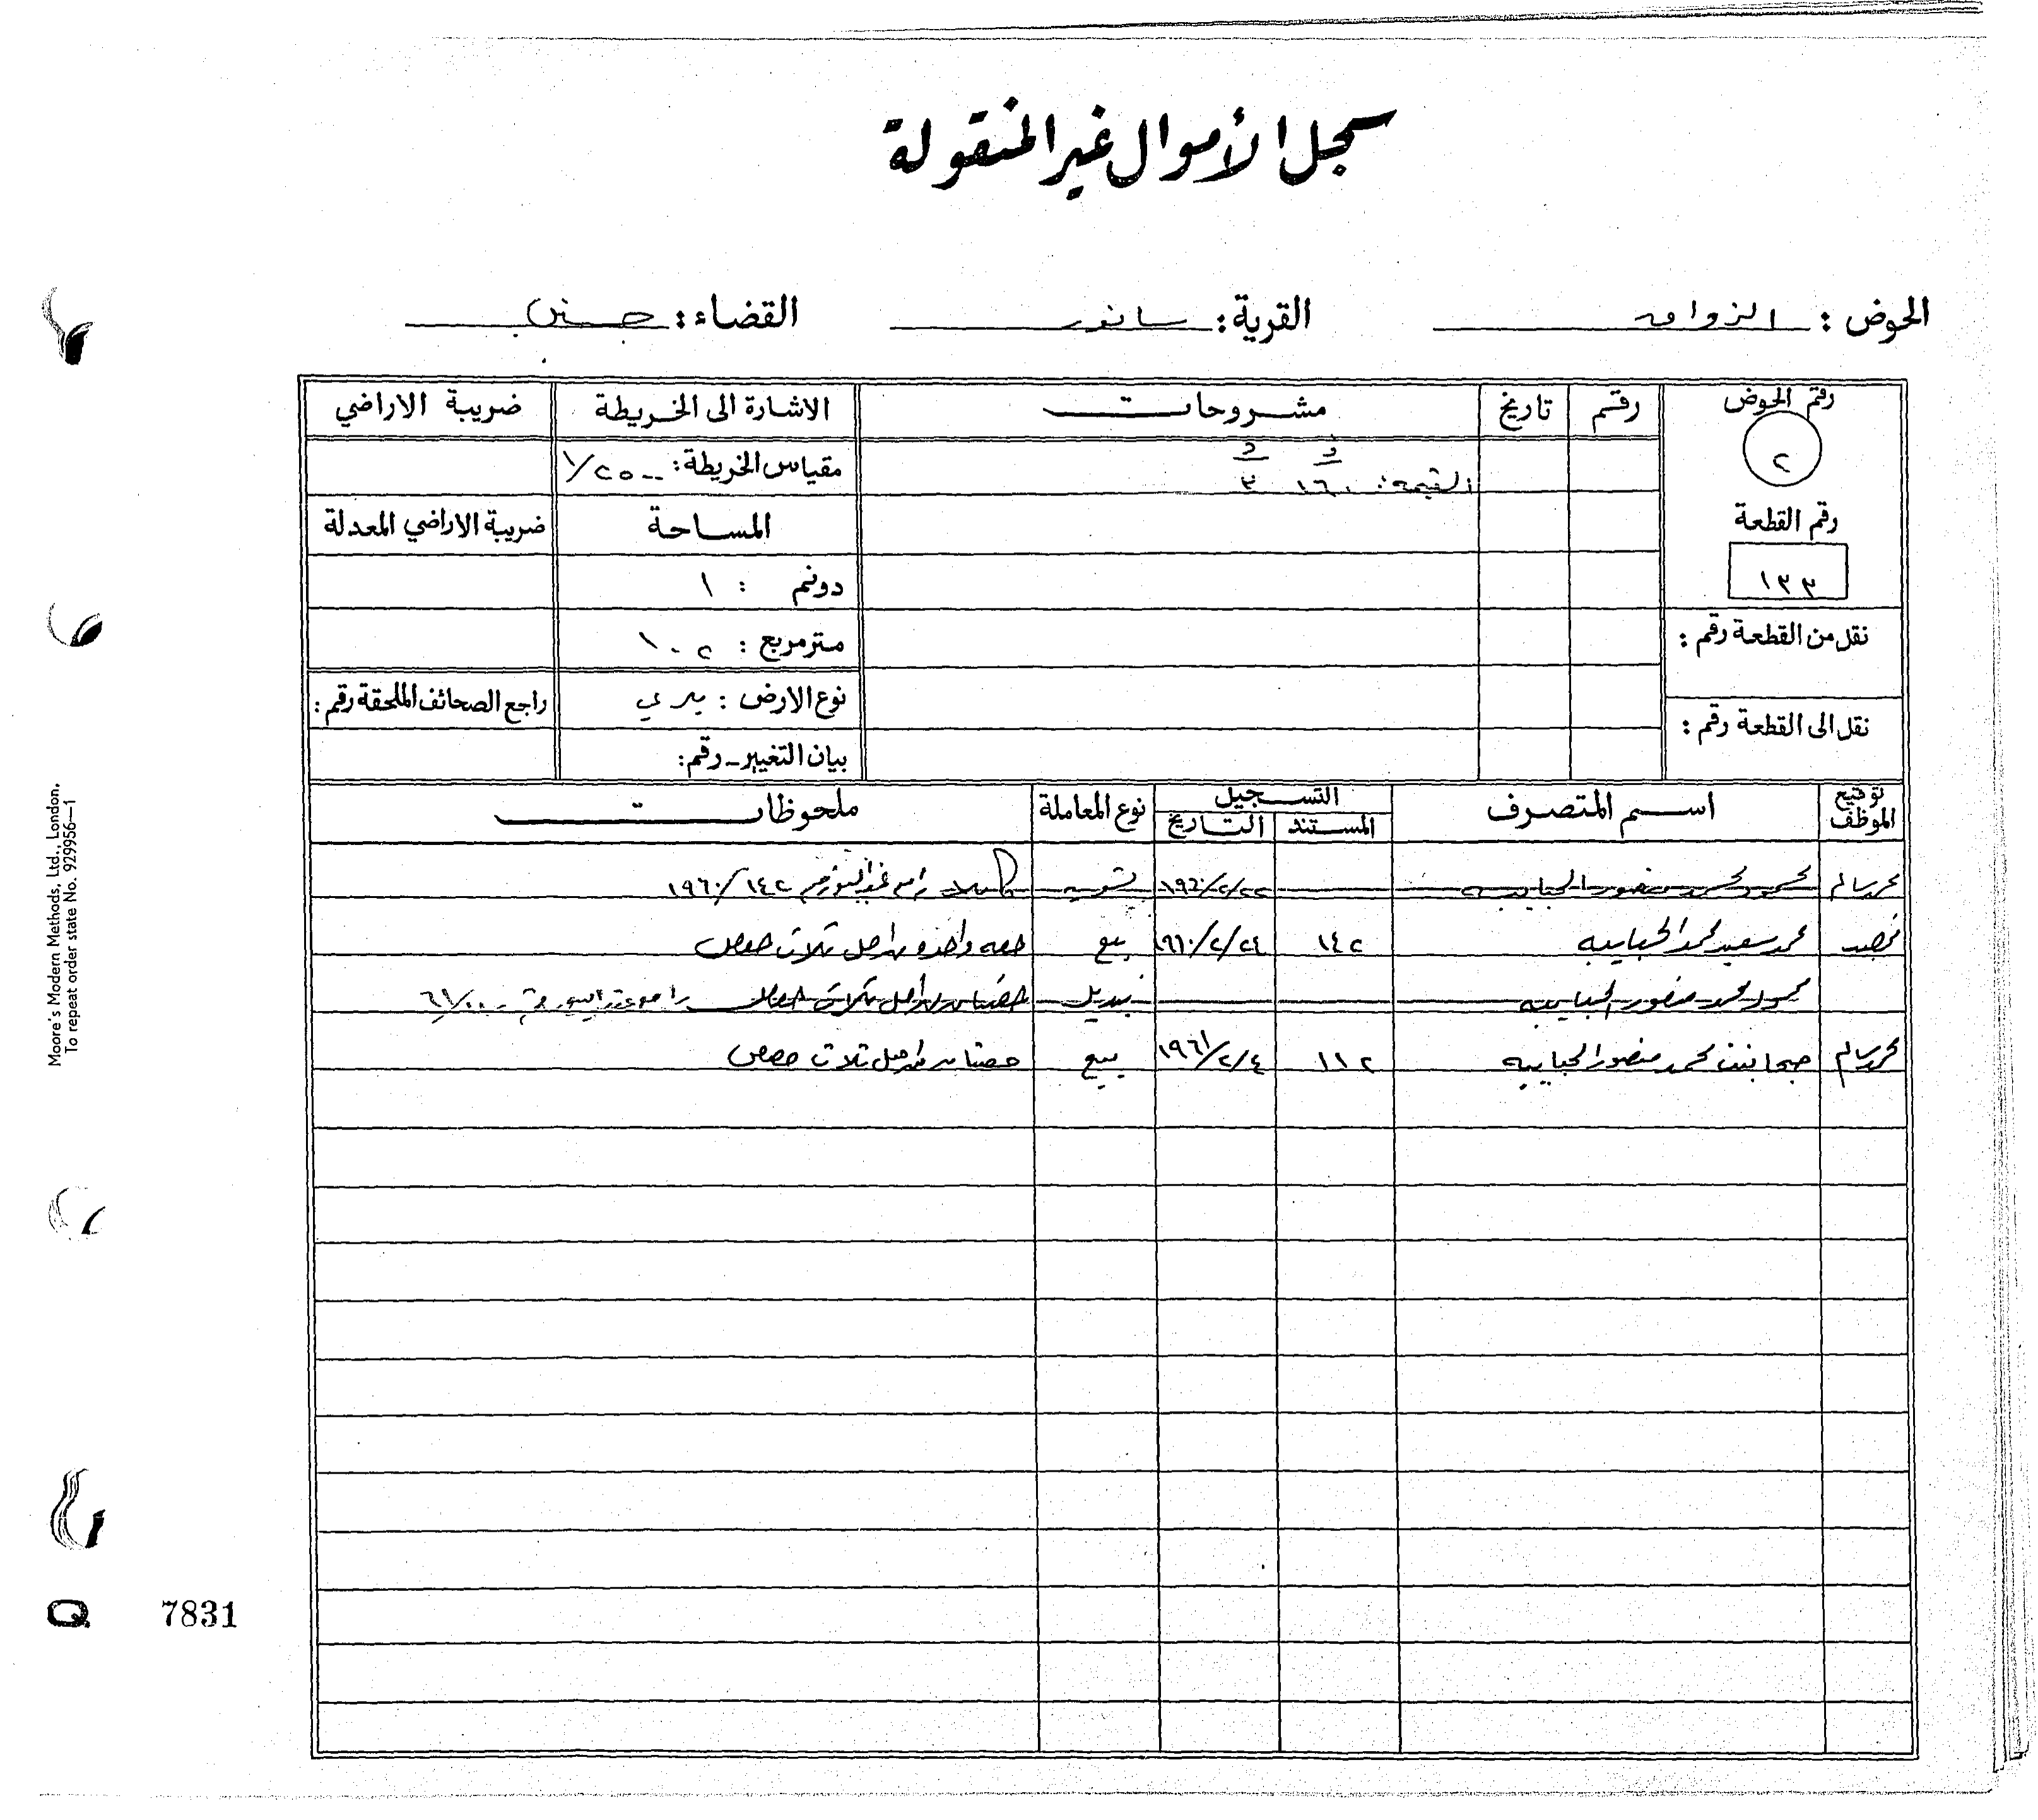 سجل الأموال غير المنقولة
الحوض : القرية : سانور القضاء : جنين
رقم الحوض رقم تاريخ مشروحات الاشارة الى الخريطة ضريبة الاراضي
٢ القيمة : ١٦٠ ٣ مقياس الخريطة : ١/٢٥٠٠
رقم القطعة المساحة ضريبة الاراضي المعدلة
١٣٣ دونم : ١
نقل من القطعة رقم : متر مربع : ١٠٢
نوع الارض : راجع الصحائف الملحقة رقم :
نقل الى القطعة رقم :
بيان التغيير - رقم :
توقيع الموظف اسم المتصرف التسجيل نوع المعاملة ملحوظات
المستند التاريخ
محمود محمد منصور الحبايبه ١٩٦٠/٢/٢٢ تسويه كاملا ١٩٦٠/١٤٢
محمد سعيد محمد الحبايبه ١٤٢ ١٩٦٠/٢/٢٤ بيع حصه واحده من اصل ثلاث حصص
محمود محمد منصور الحبايبه تبديل حصتان من اصل ثلاث حصص
بنت محمد منصور الحبايبه ١١٢ ١٩٦١/٢/٤ بيع حصتان من اصل ثلاث حصص
Moore's Modern Methods, Ltd., London.
To repeat order state No. 929956—1
Q 7831